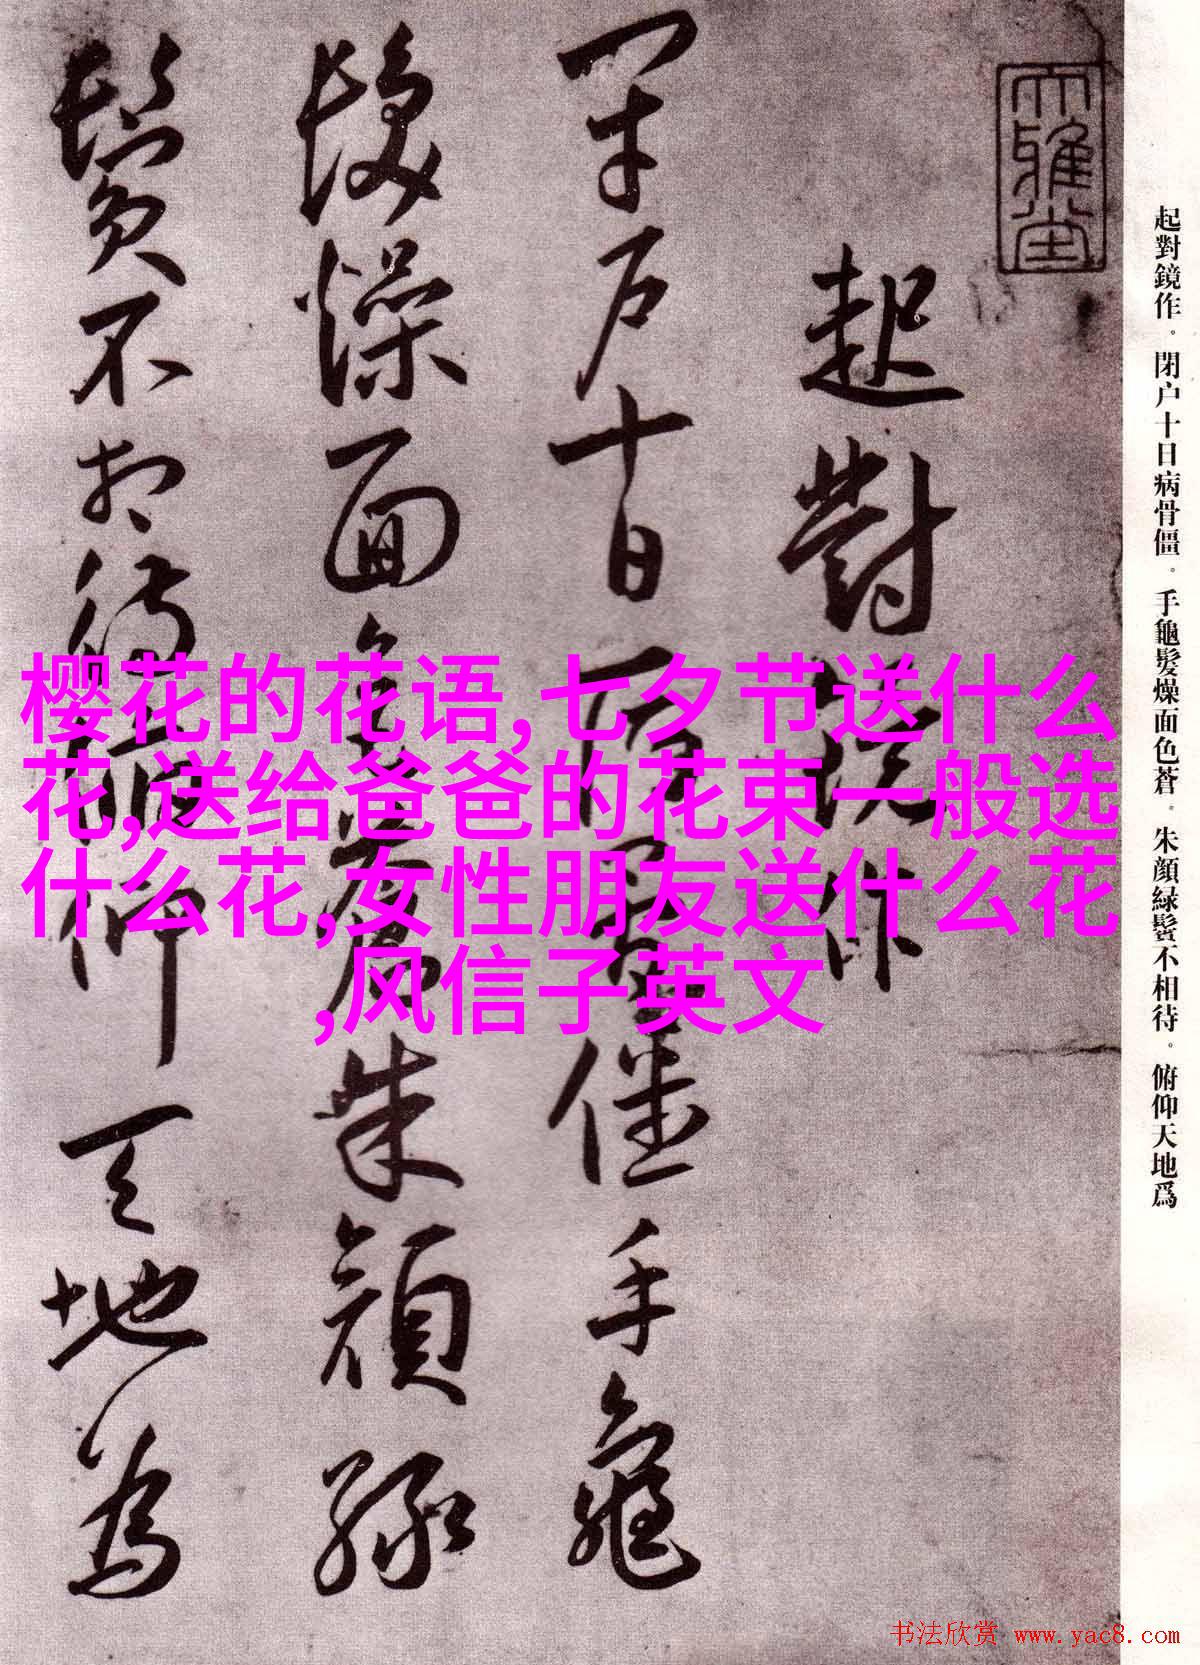 大雅堂
起對鏡作
閉户十日病骨僵手龜
髮燥面色蒼朱顔緑
鬢不相待俯仰天地爲
起對鏡作。閉户十日病骨僵。手龜髮燥面色蒼。朱顔緑鬢不相待。俯仰天地爲
樱花的花语,七夕节送什么
花,送给爸爸的花束一般选
什么花,女性朋友送什么花
,风信子英文
书法欣赏 www.yac8.com